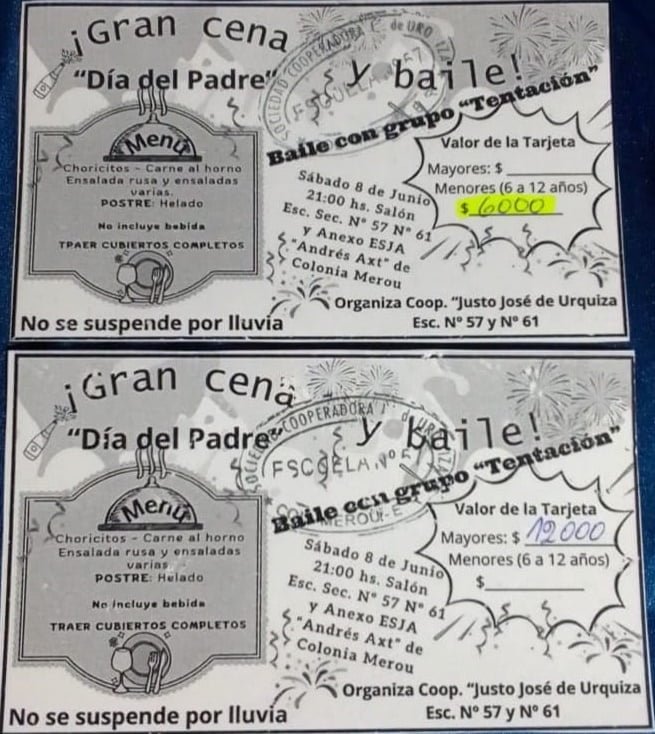 ¡Gran cena
y baile!
"Día del Padre"
SOCIEDAD COOPERADORA
ESCUELA Nº 57
Baile con grupo "Tentación"
Menú
Choricitos - Carne al horno
Ensalada rusa y ensaladas
varias.
POSTRE: Helado
No incluye bebida
TPAER CUBIERTOS COMPLETOS
Sábado 8 de Junio
21:00 hs. Salón
Esc. Sec. Nº 57 Nº 61
y Anexo ESJA
"Andrés Axt" de
Colonia Merou
Valor de la Tarjeta
Mayores: $
Menores (6 a 12 años)
$ 6000
Organiza Coop. "Justo José de Urquiza
Esc. Nº 57 y Nº 61
No se suspende por lluvia
¡Gran cena
y baile!
"Día del Padre"
COOPERADORA
ESCUELA Nº 5
Baile con grupo "Tentación"
Menú
Choricitos - Carne al horno
Ensalada rusa y ensaladas
varias
POSTRE: Helado
No incluye bebida
TRAER CUBIERTOS COMPLETOS
Sábado 8 de Junio
21:00 hs. Salón
Esc. Sec. Nº 57 Nº 61
y Anexo ESJA
"Andrés Axt" de
Colonia Merou
Valor de la Tarjeta
Mayores: $ 12000
Menores (6 a 12 años)
$
Organiza Coop. "Justo José de Urquiza
Esc. Nº 57 y Nº 61
No se suspende por lluvia